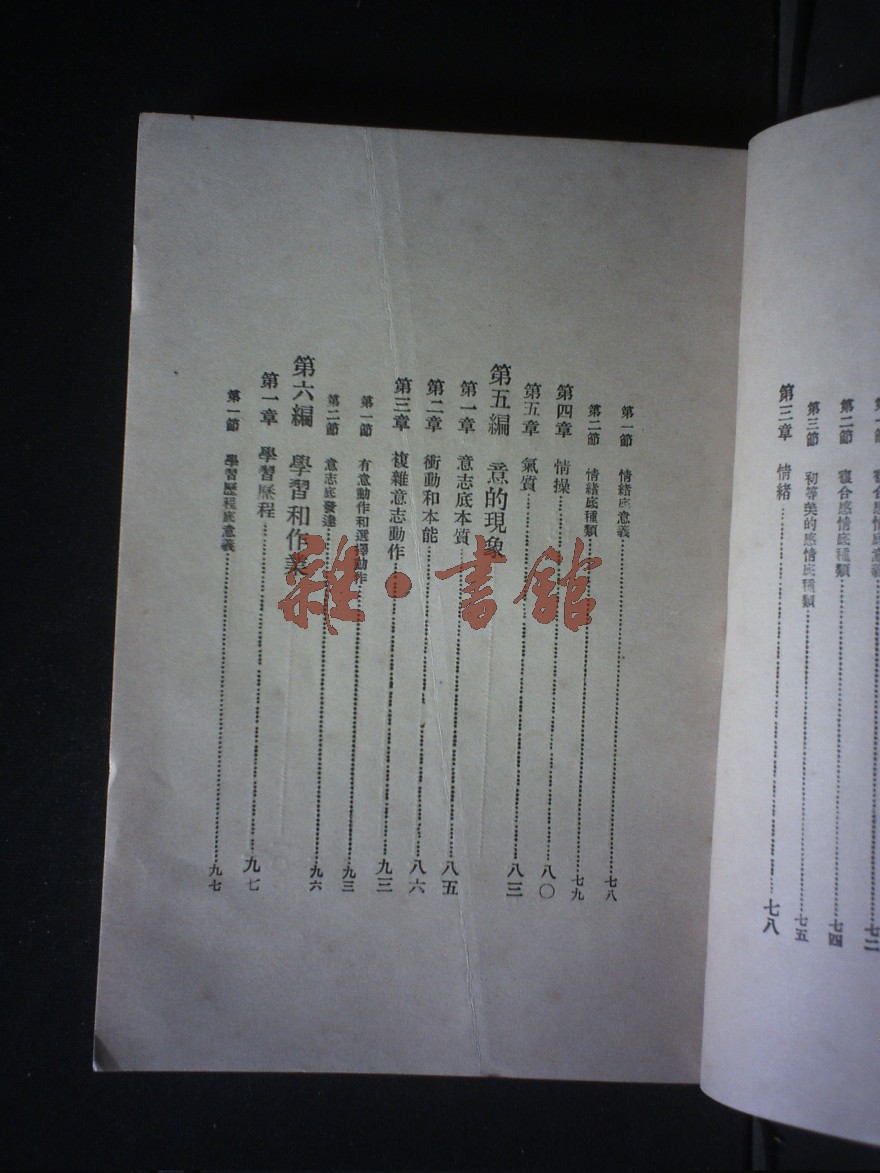 第一節 複合感情底意義……七二
第二節 複合感情底種類……七四
第三節 初等美的感情底種類……七五
第三章 情緒……七八
第一節 情緒底意義……七八
第二節 情緒底種類……七九
第四章 情操……八〇
第五章 氣質……八三
第五編 意的現象
第一章 意志底本質……八五
第二章 衝動和本能……八六
第三章 複雜意志動作……九三
第一節 有意動作和選擇動作……九三
第二節 意志底發達……九六
第六編 學習和作業
第一章 學習歷程……九七
第一節 學習歷程底意義……九七
雜·書館